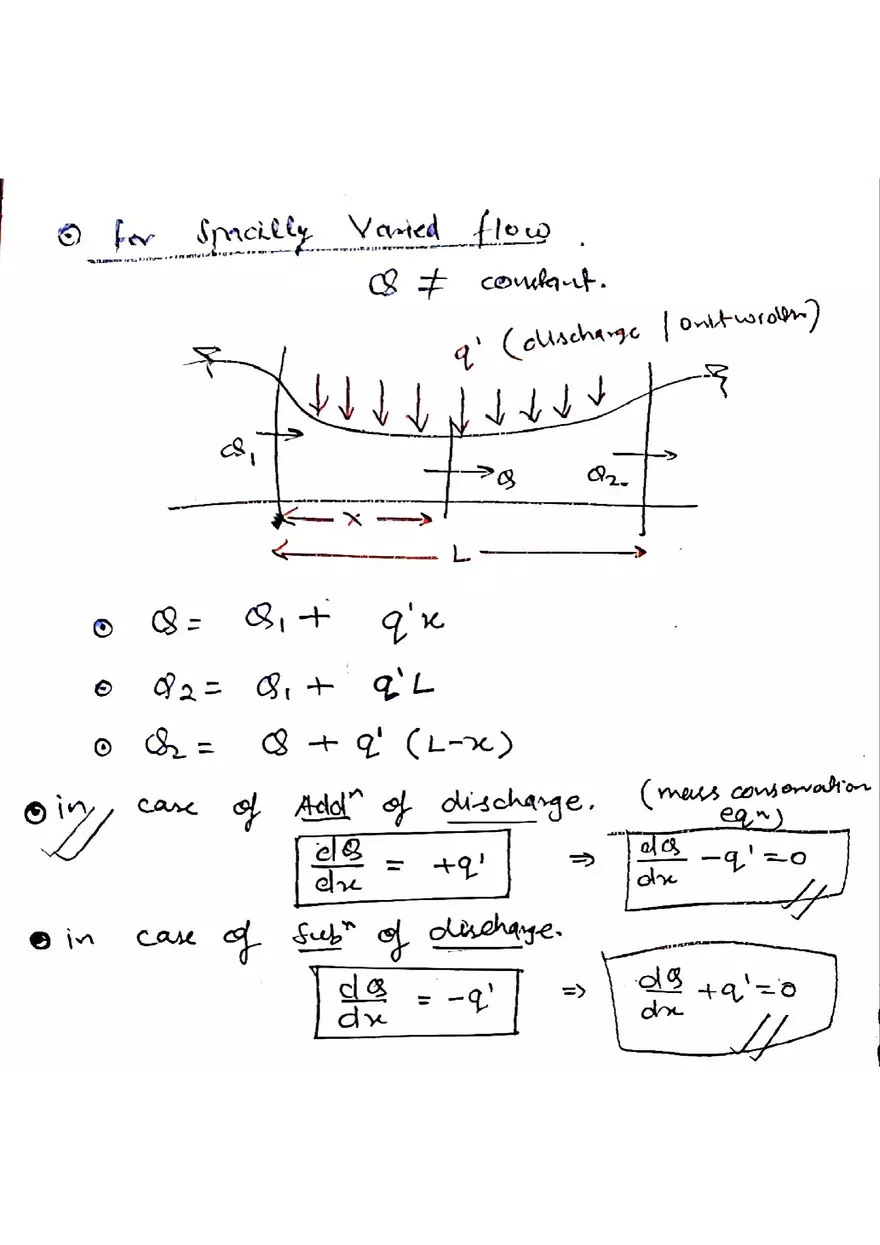 ⊙ for Spacilly Varied flow.
Q ≠ constant.
q' (discharge / unit width)
Q₁
Q
Q₂
x
L
⊙ Q = Q₁ + q'x
⊙ Q₂ = Q₁ + q'L
⊙ Q₂ = Q + q' (L-x)
⊙ in case of Addⁿ of discharge. (mass conservation eqⁿ)
dQ/dx = +q' ⇒ dQ/dx - q' = 0
● in case of Subⁿ of discharge.
dQ/dx = -q' ⇒ dQ/dx + q' = 0